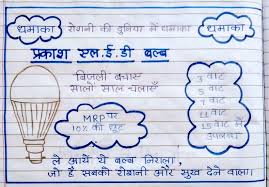 धमाका
रोशनी की दुनिया में धमाका
धमाका
प्रकाश एल.ई.डी बल्ब
बिजली बचाएँ
सालों साल चलाएँ
3 वाट
5 वाट
7 वाट
11 वाट
15 वाट में
उपलब्ध
MRP पर
10% की छूट
ले आयें ये बल्ब निराला,
जो है सबको रोशनी और सुख देने वाला।